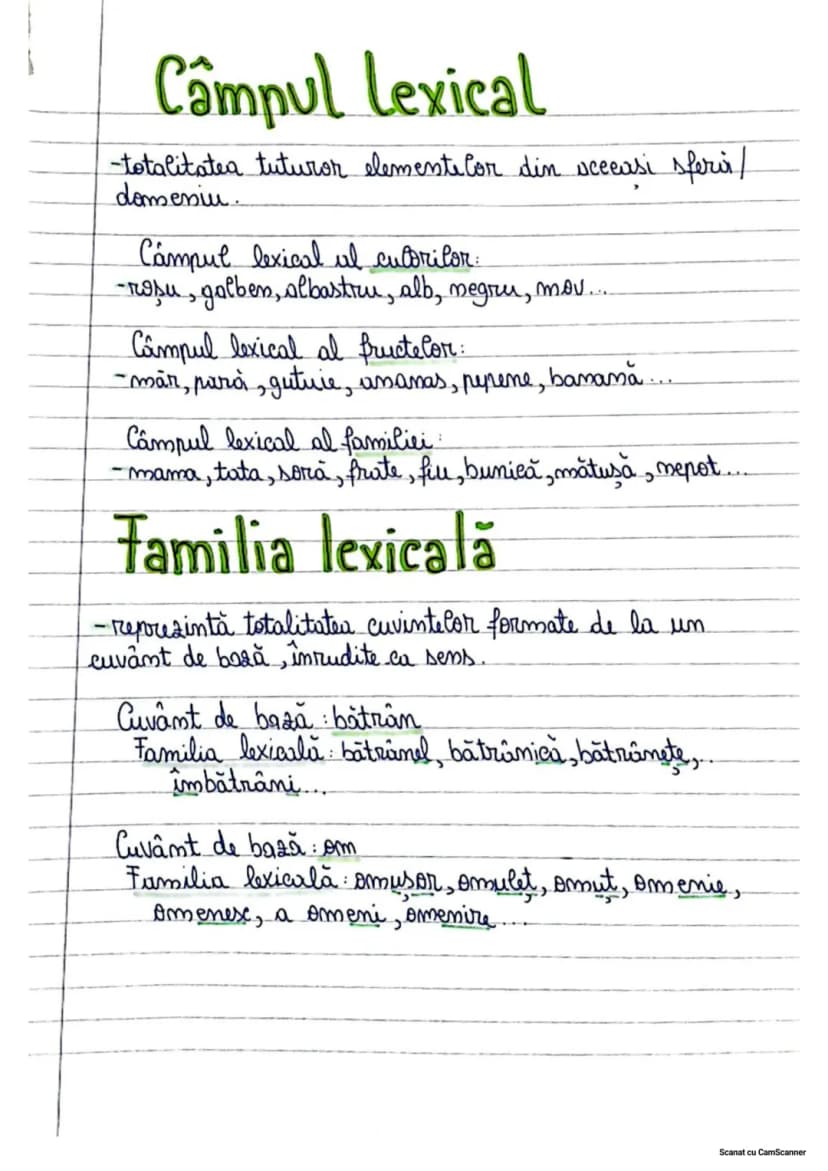 Câmpul lexical
-totalitatea tuturor elementelor din aceeași sferă/
domeniu.
Câmpul lexical al culorilor:
-roșu, galben, albastru, alb, negru, mov...
Câmpul lexical al fructelor:
-măr, pară, gutuie, ananas, pepene, banană...
Câmpul lexical al familiei:
-mama, tata, soră, frate, fiu, bunică, mătușă, nepot...
Familia lexicală
-reprezintă totalitatea cuvintelor formate de la un
cuvânt de bază, înrudite ca sens.
Cuvânt de bază: bătrân
Familia lexicală: bătrânel, bătrânică, bătrânețe,..
îmbătrâni...
Cuvânt de bază: om
Familia lexicală: omușor, omuleț, omuț, omenie,
omenesc, a omeni, omenire...
Scanat cu CamScanner